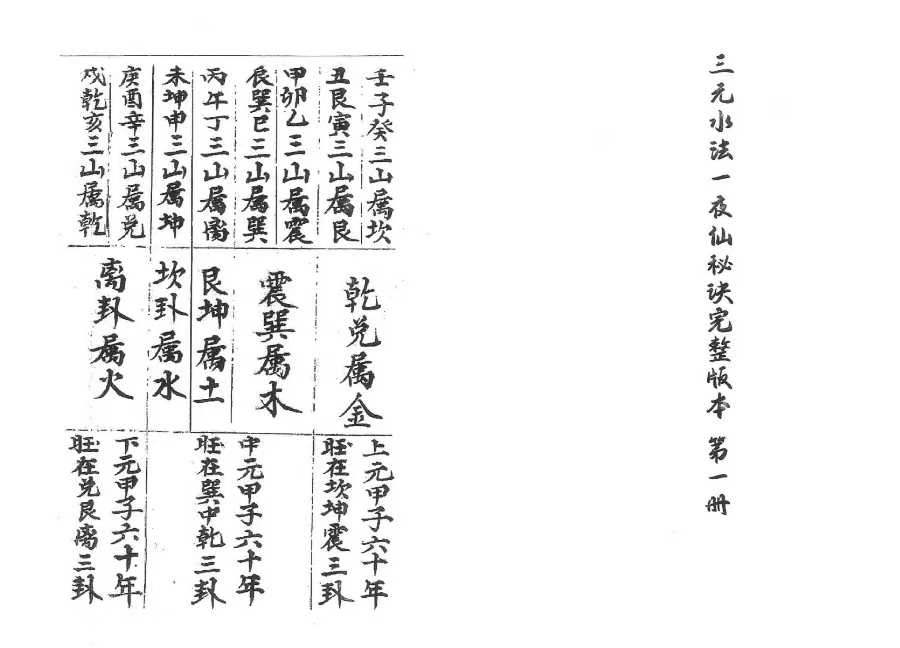 三元水法一夜仙秘诀完整版本 第一册
壬子癸三山属坎
丑艮寅三山属艮
甲卯乙三山属震
辰巽巳三山属巽
丙午丁三山属离
未坤申三山属坤
庚酉辛三山属兑
戌乾亥三山属乾
乾兑属金
震巽属木
艮坤属土
坎卦属水
离卦属火
上元甲子六十年
旺在坎坤震三卦
中元甲子六十年
旺在巽中乾三卦
下元甲子六十年
旺在兑艮离三卦